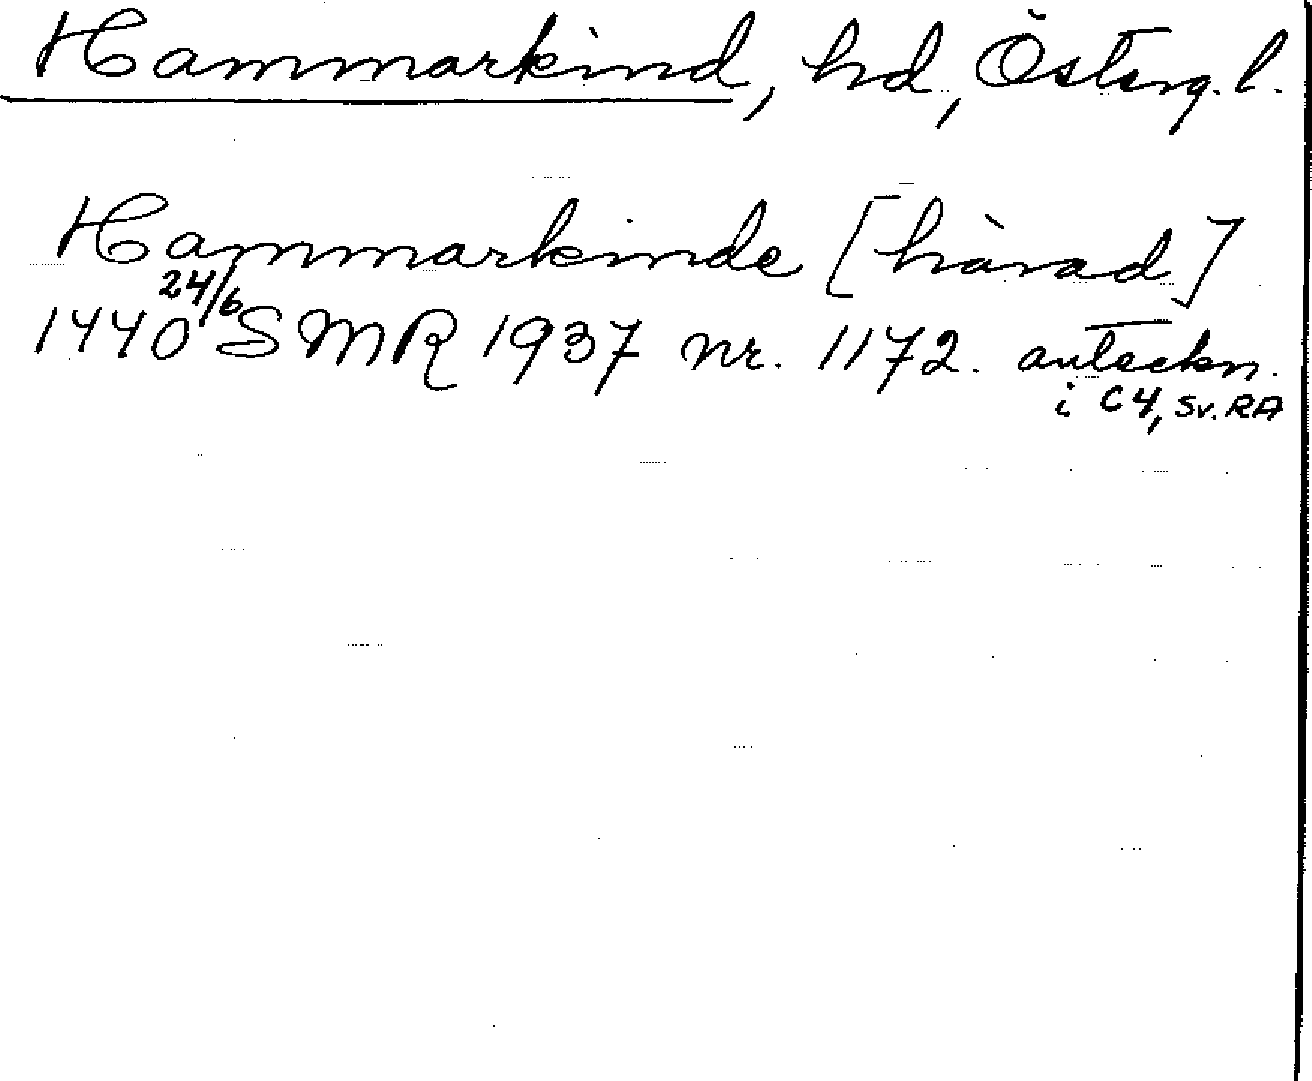 Hammarkind, hd, Österg. l.
Hammarkinde [härad]
1440 24/6 SMR 1937 nr. 1172. anteckn.
i C4, Sv. RA